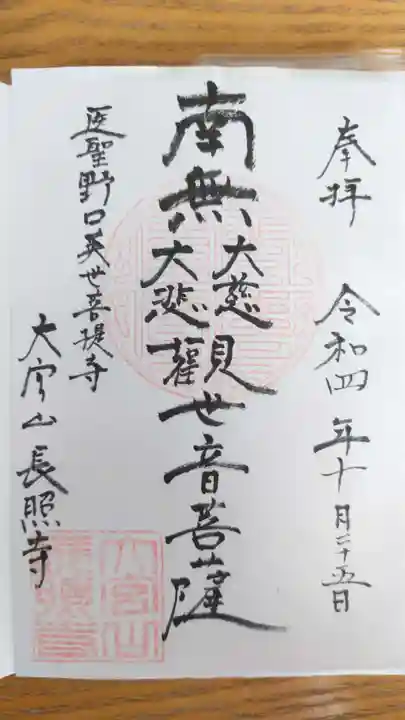 奉拝 令和四年十月二十五日
南無大慈大悲観世音菩薩
医聖野口英世菩提寺
大宮山長照寺
大宮山
長照寺